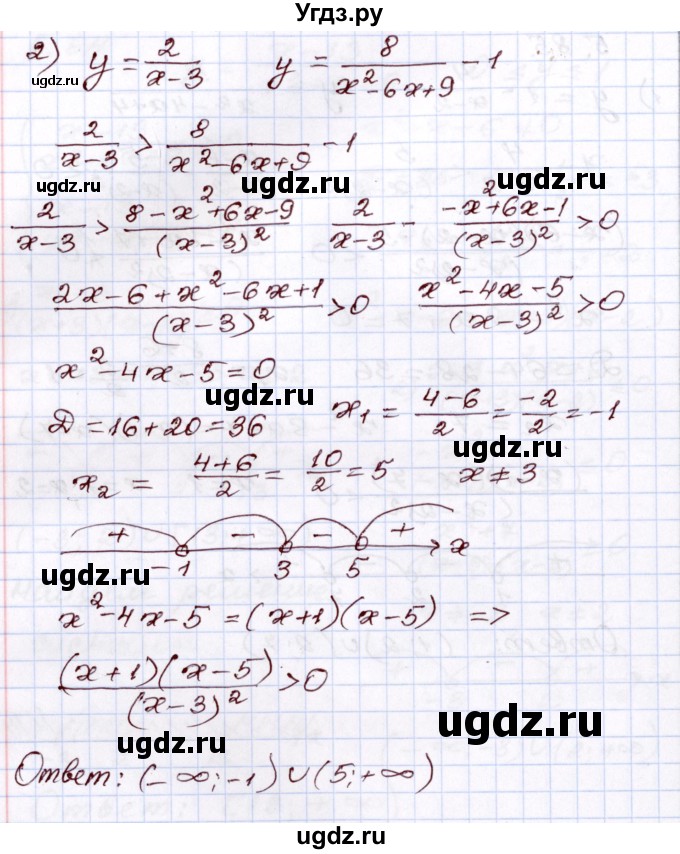 Угдз.ру
2) y = 2/(x-3)   y = 8/(x²-6x+9) - 1
ugdz.ru
2/(x-3) > 8/(x²-6x+9) - 1
ugdz.ru ugdz.ru ugdz.ru
2/(x-3) > (8-x²+6x-9)/(x-3)²   2/(x-3) - (-x²+6x-1)/(x-3)² > 0
(2x-6+x²-6x+1)/(x-3)² > 0   (x²-4x-5)/(x-3)² > 0
x²-4x-5=0
ugdz.ru
D=16+20=36   x₁ = (4-6)/2 = -2/2 = -1
ugdz.ru
x₂ = (4+6)/2 = 10/2 = 5   x≠3
+ - - + x
-1 3 5
ugdz.ru
x²-4x-5 = (x+1)(x-5) =>
ugdz.ru
((x+1)(x-5))/(x-3)² > 0
ugdz.ru
ugdz.ru
Ответ: (-∞;-1)∪(5;+∞)
ugdz.ru